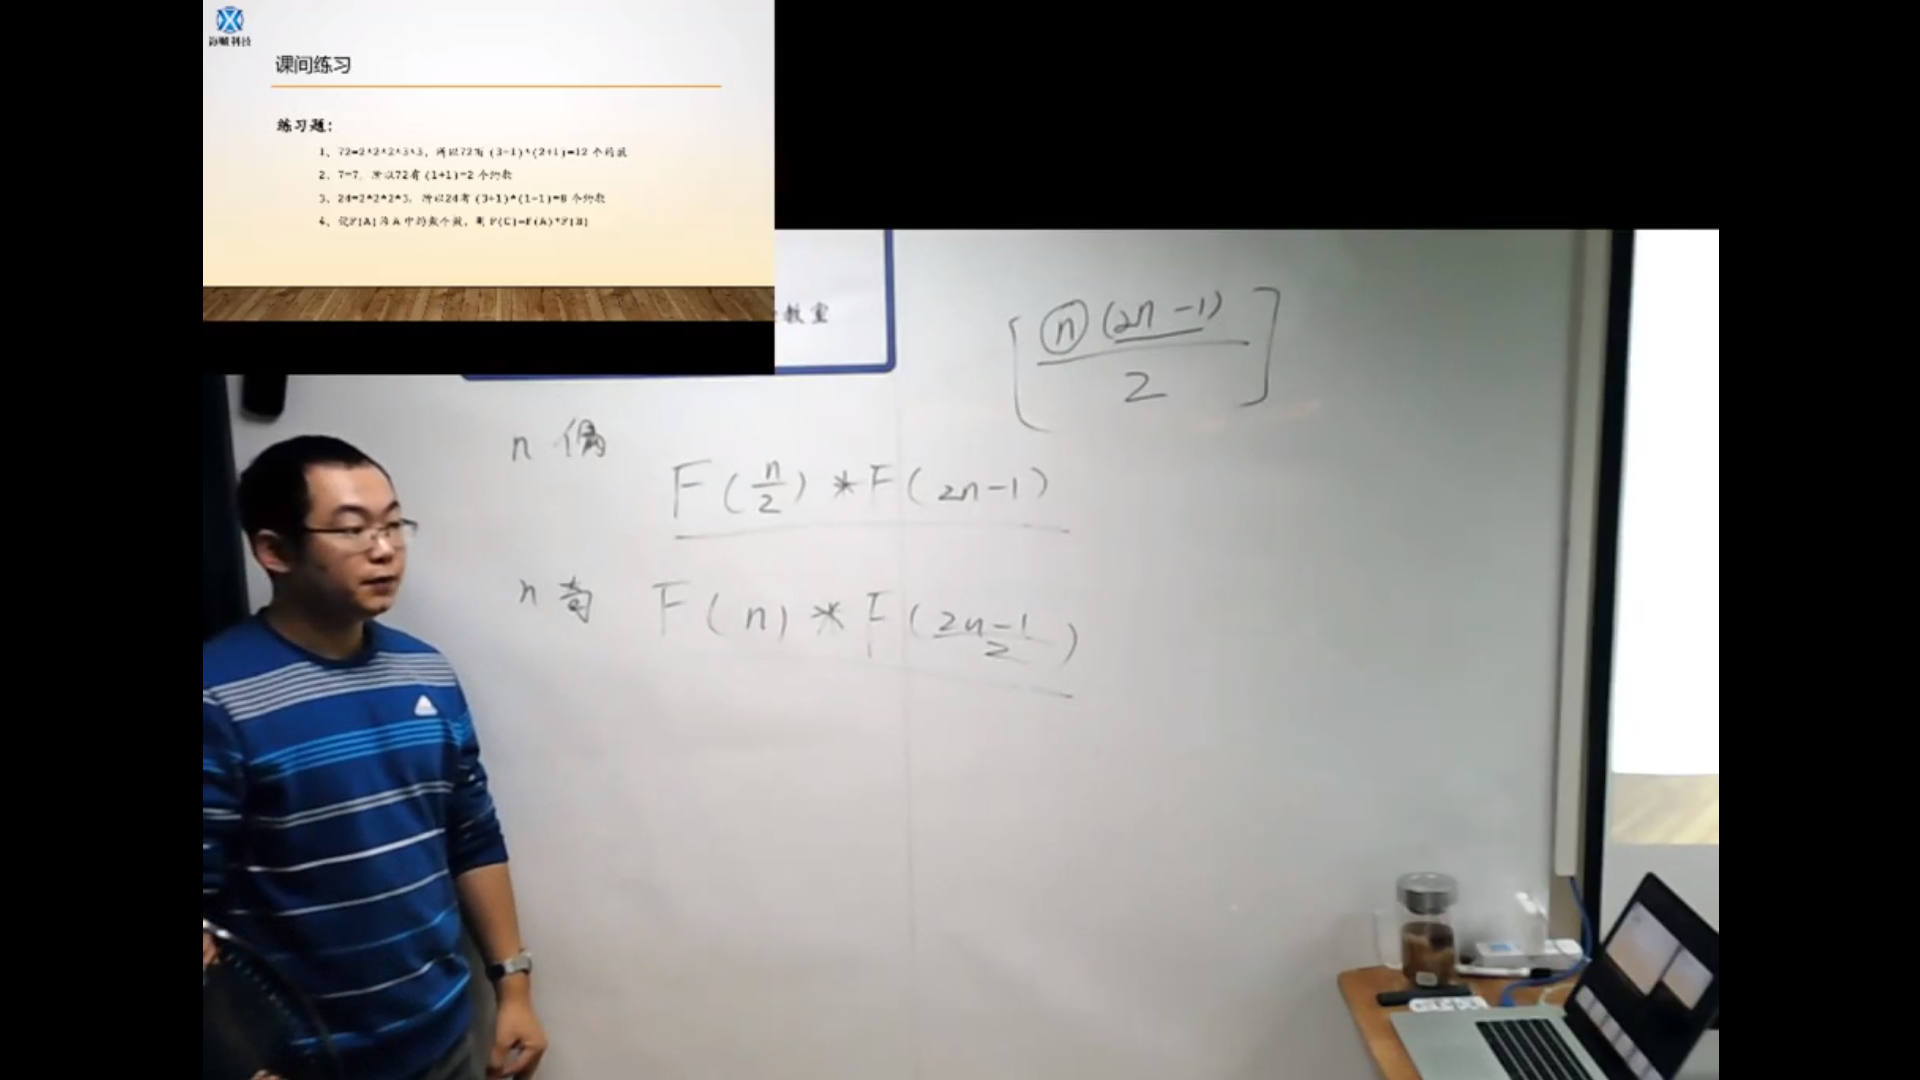 海贼科技
课间练习
练习题：
1、72=2*2*2*3*3，所以72有 (3+1)*(2+1)=12 个约数
2、7=7，所以72有 (1+1)=2 个约数
3、24=2*2*2*3，所以24有 (3+1)*(1+1)=8 个约数
4、设F(A)为A中约数个数，则 F(C)=F(A)*F(B)
教室
[n(2n-1)/2]
n 偶
F(n/2) * F(2n-1)
n 奇 F(n) * F((2n-1)/2)